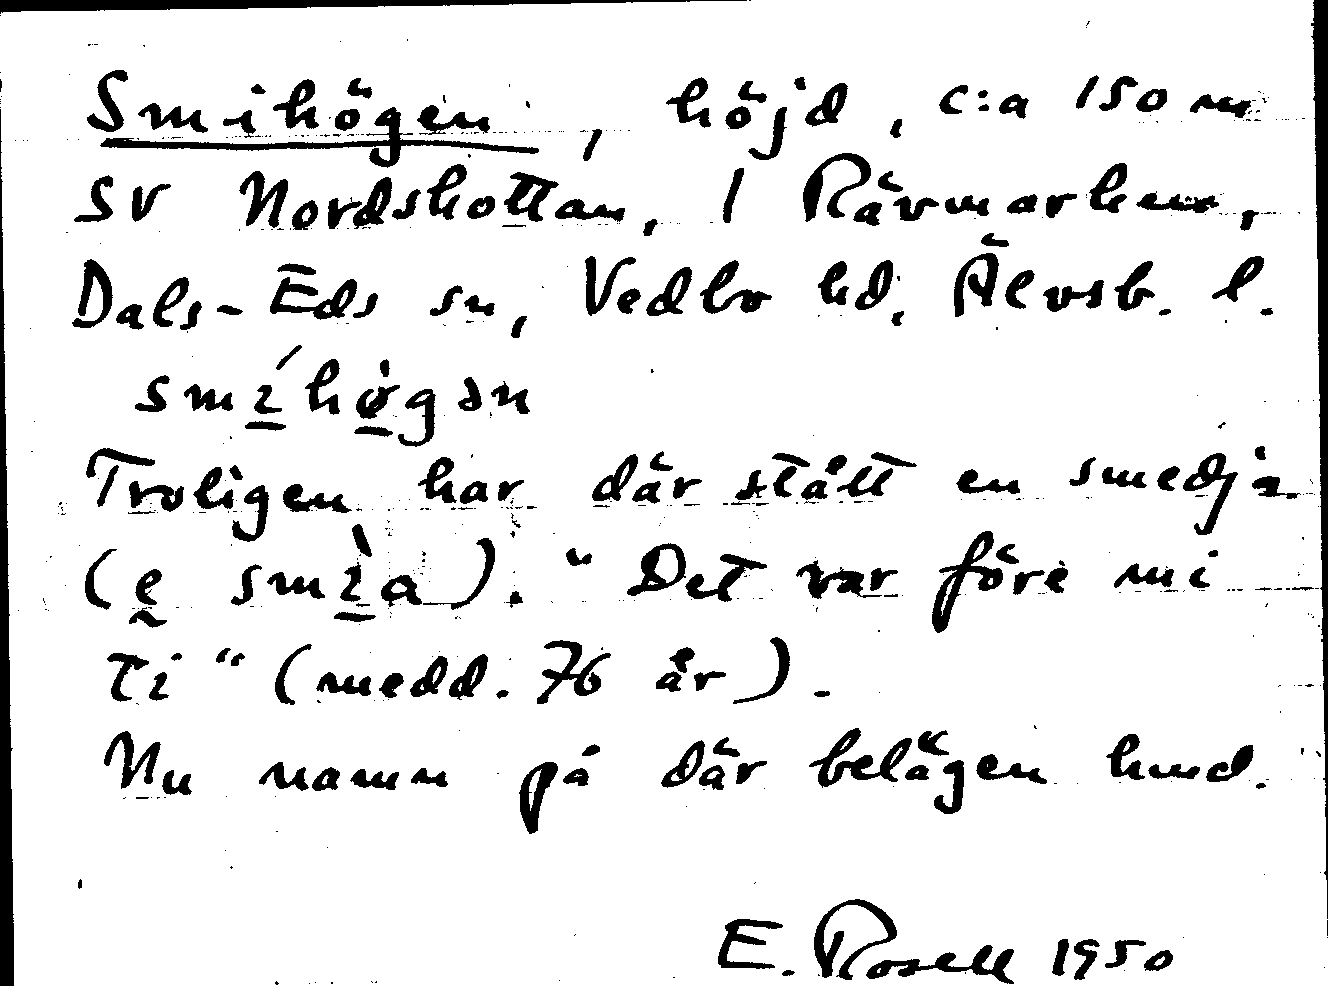 Smihögen, höjd, c:a 150 m
SV Nordskottan, 1 Rävmarken,
Dals-Eds sn, Vedbo hd, Älvsb. l.
smíhøgən
Troligen har där stått en smedja
(e smìa). "Det var före mi
ti" (medd. 76 år).
Nu namn på där belägen hmd.
E. Rosell 1950